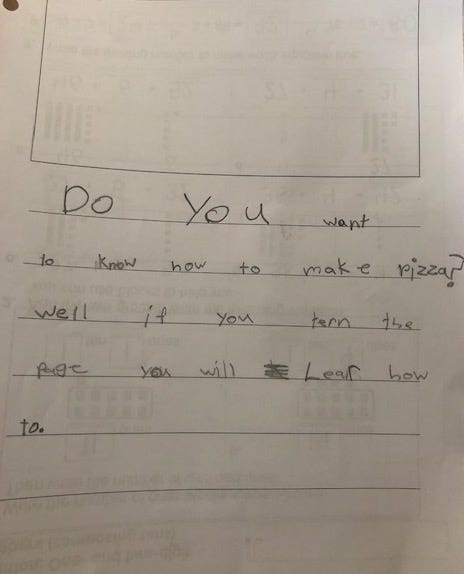 Do You want
to know how to make pizza?
well if you tern the
page you will Lear how
to.